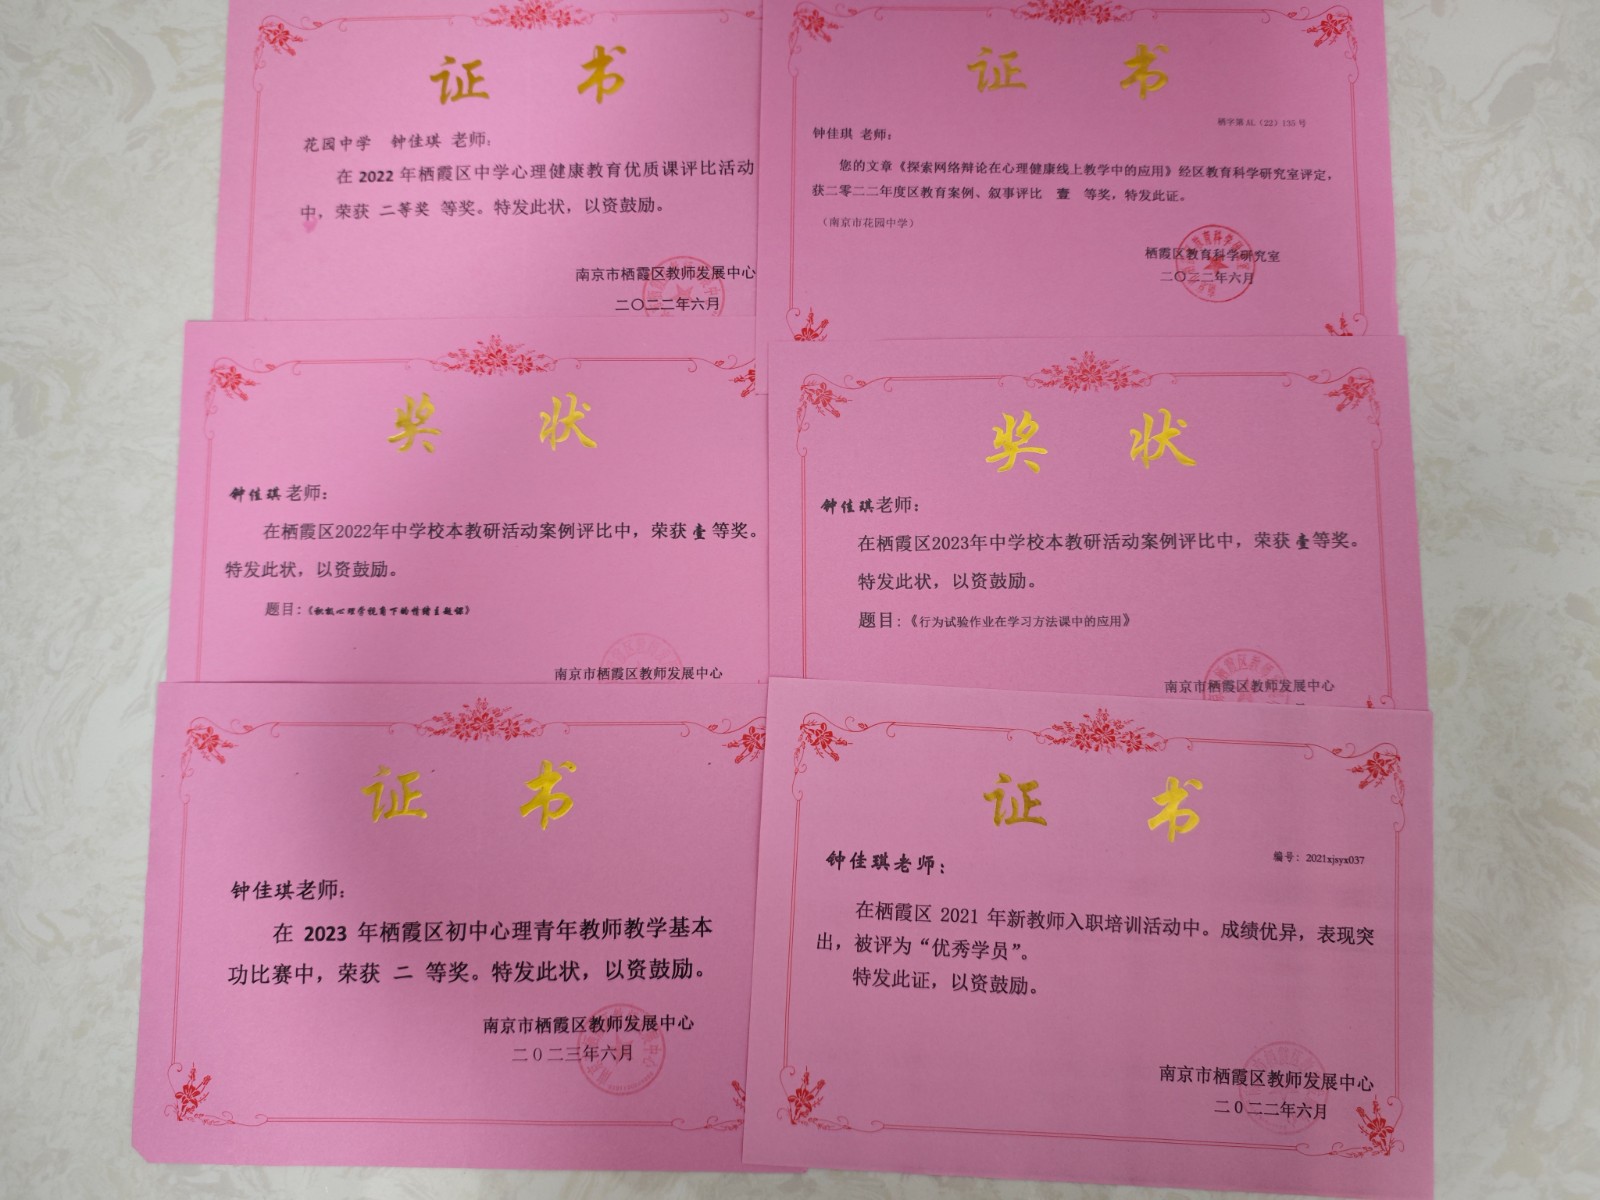 证 书
花园中学 钟佳琪 老师：
在 2022 年栖霞区中学心理健康教育优质课评比活动
中，荣获 二等奖 等奖。特发此状，以资鼓励。
南京市栖霞区教师发展中心
二〇二二年六月
证 书
栖字第 AL（22）135 号
钟佳琪 老师：
您的文章《探索网络辩论在心理健康线上教学中的应用》经区教育科学研究室评定，
获二零二二年度区教育案例、叙事评比 壹 等奖，特发此证。
（南京市花园中学）
栖霞区教育科学研究室
二〇二二年六月
奖 状
钟佳琪老师：
在栖霞区2022年中学校本教研活动案例评比中，荣获 壹 等奖。
特发此状，以资鼓励。
题目：《积极心理学视角下的情绪主题课》
南京市栖霞区教师发展中心
奖 状
钟佳琪老师：
在栖霞区2023年中学校本教研活动案例评比中，荣获壹等奖。
特发此状，以资鼓励。
题目：《行为试验作业在学习方法课中的应用》
南京市栖霞区教师发展中心
证 书
钟佳琪老师：
在 2023 年栖霞区初中心理青年教师教学基本
功比赛中，荣获 二 等奖。特发此状，以资鼓励。
南京市栖霞区教师发展中心
二０二三年六月
证 书
编号：2021xjsyx037
钟佳琪老师：
在栖霞区 2021 年新教师入职培训活动中。成绩优异，表现突
出，被评为“优秀学员”。
特发此证，以资鼓励。
南京市栖霞区教师发展中心
二０二二年六月